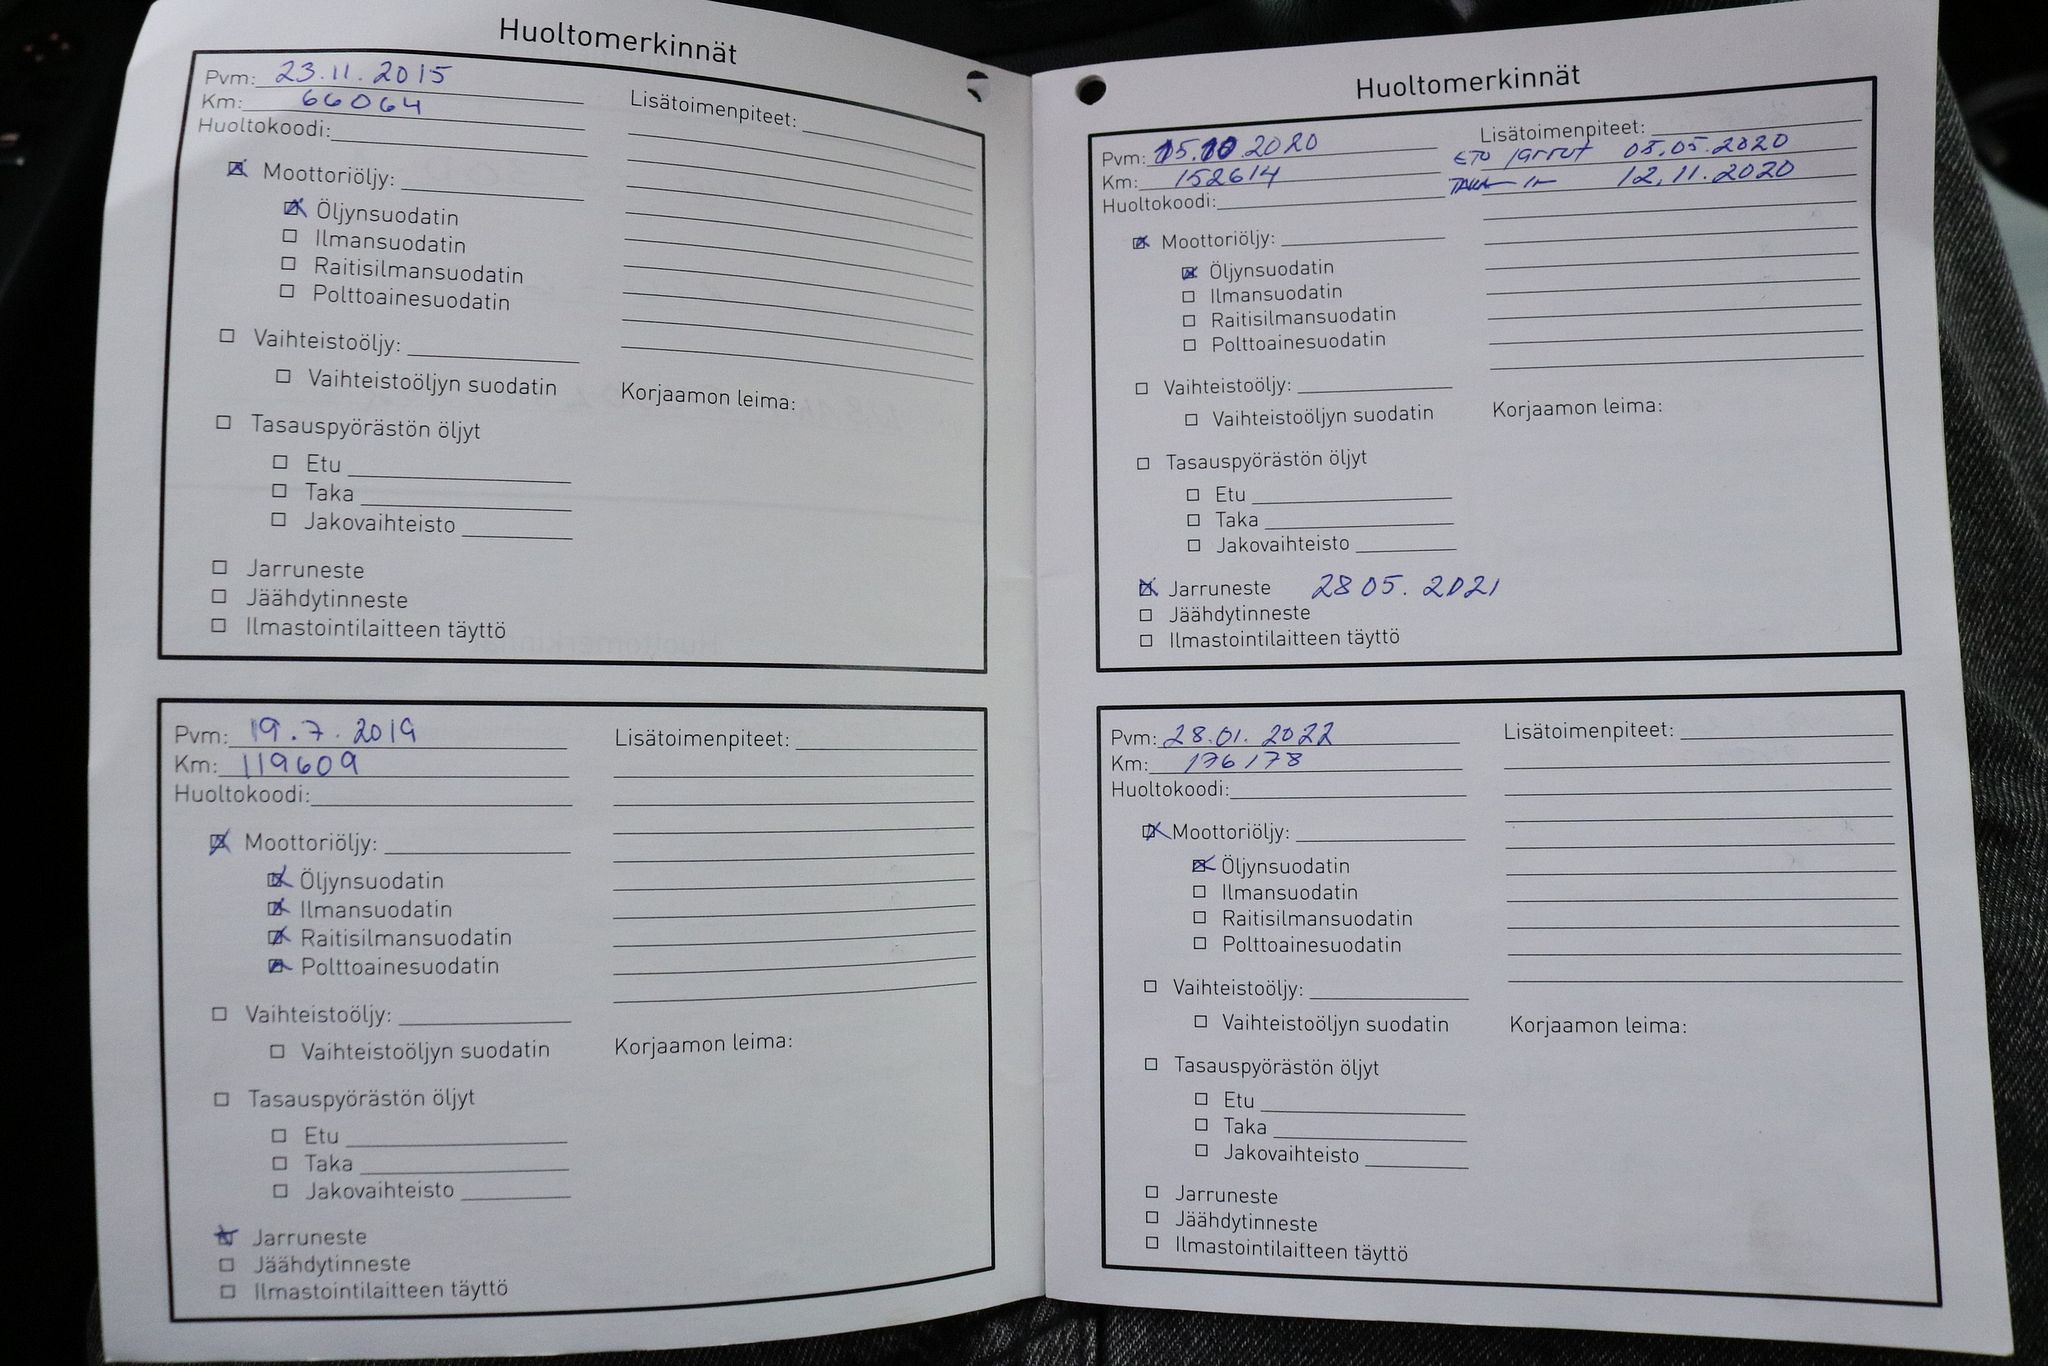 Huoltomerkinnät
Pvm: 23.11.2015
Km: 66064
Huoltokoodi:
Lisätoimenpiteet:
Moottoriöljy:
Öljynsuodatin
Ilmansuodatin
Raitisilmansuodatin
Polttoainesuodatin
Vaihteistoöljy:
Vaihteistoöljyn suodatin
Korjaamon leima:
Tasauspyörästön öljyt
Etu
Taka
Jakovaihteisto
Jarruneste
Jäähdytinneste
Ilmastointilaitteen täyttö
Pvm: 19.7.2019
Km: 119609
Huoltokoodi:
Lisätoimenpiteet:
Moottoriöljy:
Öljynsuodatin
Ilmansuodatin
Raitisilmansuodatin
Polttoainesuodatin
Vaihteistoöljy:
Vaihteistoöljyn suodatin
Korjaamon leima:
Tasauspyörästön öljyt
Etu
Taka
Jakovaihteisto
Jarruneste
Jäähdytinneste
Ilmastointilaitteen täyttö
Huoltomerkinnät
Pvm: 15.10.2020
Km: 152614
Huoltokoodi:
Lisätoimenpiteet:
ETU jarrut 05.05.2020
TAKA -11- 12.11.2020
Moottoriöljy:
Öljynsuodatin
Ilmansuodatin
Raitisilmansuodatin
Polttoainesuodatin
Vaihteistoöljy:
Vaihteistoöljyn suodatin
Korjaamon leima:
Tasauspyörästön öljyt
Etu
Taka
Jakovaihteisto
Jarruneste 28 05. 2021
Jäähdytinneste
Ilmastointilaitteen täyttö
Pvm: 28.01.2022
Km: 176178
Huoltokoodi:
Lisätoimenpiteet:
Moottoriöljy:
Öljynsuodatin
Ilmansuodatin
Raitisilmansuodatin
Polttoainesuodatin
Vaihteistoöljy:
Vaihteistoöljyn suodatin
Korjaamon leima:
Tasauspyörästön öljyt
Etu
Taka
Jakovaihteisto
Jarruneste
Jäähdytinneste
Ilmastointilaitteen täyttö